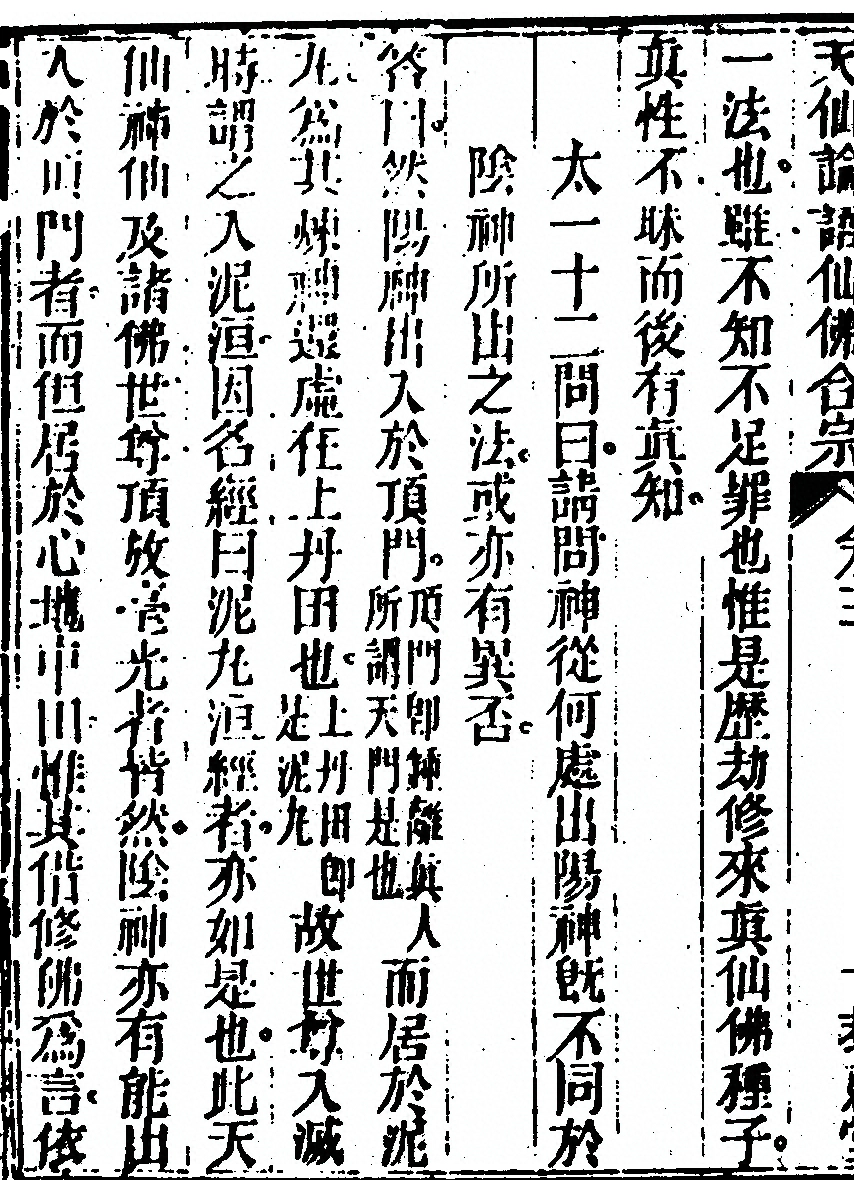 天仙論語仙佛合宗
一法也雖不知不足罪也惟是歷劫修來真仙佛種子
真性不昧而後有真知
太一十二問曰請問神從何處出陽神既不同於
陰神所出之法或亦有異否
答曰然陽神出入於頂門頂門即鍾離真人所謂天門是也而居於泥
九為其煉神還虛在上丹田也上丹田即是泥九故世尊入滅
時謂之入泥洹因名經曰泥九洹經者亦如是也此天
仙神仙及諸佛世尊頂放毫光者皆然陰神亦有能出
入於頂門者而但居於心地中田惟其借修佛為言依